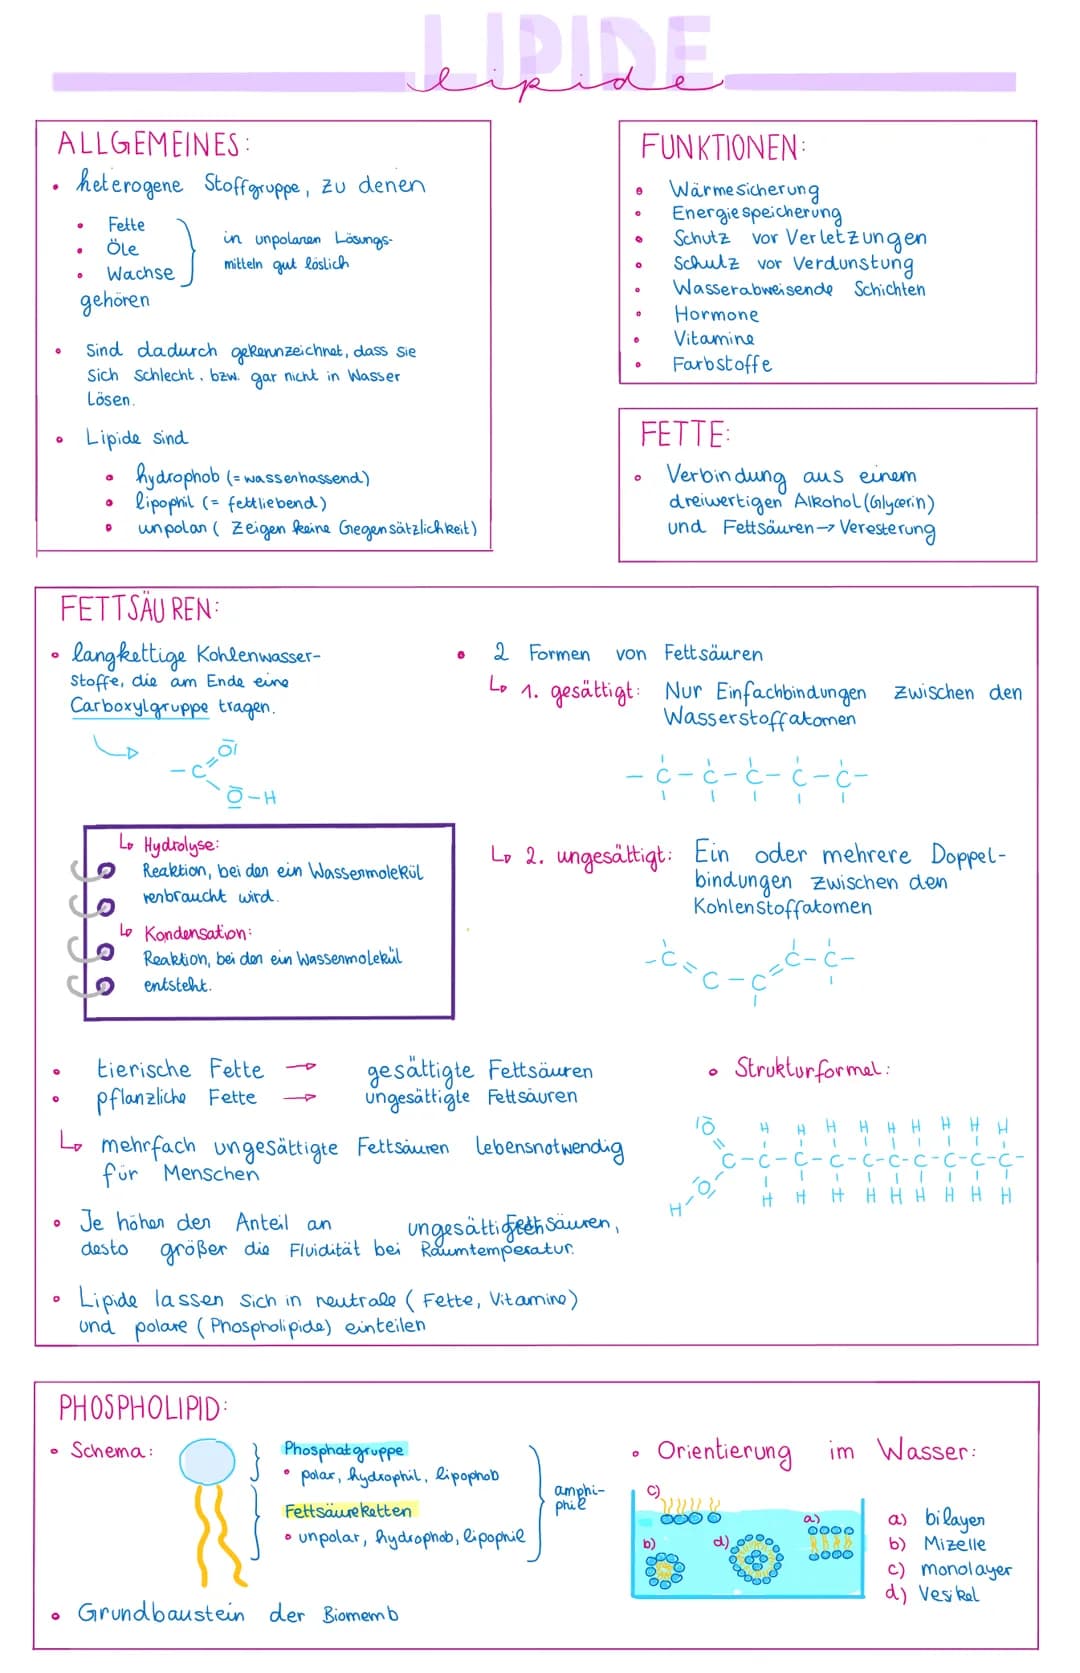 LIPIDE
lipide
ALLGEMEINES:
• heterogene Stoffgruppe, zu denen
• Fette
• Öle
• Wachse
in unpolaren Lösungs-
mitteln gut löslich
gehören
• Sind dadurch gekennzeichnet, dass sie
sich schlecht, bzw. gar nicht in Wasser
Lösen.
• Lipide sind
• hydrophob (= wasserhassend)
• lipophil (= fettliebend)
• unpolar ( zeigen keine Gegensätzlichkeit)
FUNKTIONEN:
• Wärmesicherung
• Energiespeicherung
• Schutz vor Verletzungen
• Schutz vor Verdunstung
• Wasserabweisende Schichten
• Hormone
• Vitamine
• Farbstoffe
FETTE:
• Verbindung aus einem
dreiwertigen Alkohol (Glycerin)
und Fettsäuren → Veresterung
FETTSÄUREN:
• langkettige Kohlenwasser-
stoffe, die am Ende eine
Carboxylgruppe tragen.
O
– C
O – H
↳ Hydrolyse:
Reaktion, bei der ein Wassermolekül
verbraucht wird.
↳ Kondensation:
Reaktion, bei der ein Wassermolekül
entsteht.
• 2 Formen von Fettsäuren
↳ 1. gesättigt: Nur Einfachbindungen zwischen den
Wasserstoffatomen
– C – C – C – C – C –
↳ 2. ungesättigt: Ein oder mehrere Doppel-
bindungen zwischen den
Kohlenstoffatomen
– C = C – C = C – C –
• tierische Fette → gesättigte Fettsäuren
• pflanzliche Fette → ungesättigte Fettsäuren
↳ mehrfach ungesättigte Fettsäuren lebensnotwendig
für Menschen
• Je höher der Anteil an ungesättigten Fettsäuren,
desto größer die Fluidität bei Raumtemperatur.
• Lipide lassen sich in neutrale ( Fette, Vitamine)
und polare ( Phospholipide) einteilen
• Strukturformel:
O H H H H H H H H H
C – C – C – C – C – C – C – C – C – C –
O H H H H H H H H H
H
PHOSPHOLIPID:
• Schema:
Phosphatgruppe
• polar, hydrophil, lipophob
Fettsäureketten
• unpolar, hydrophob, lipophil
amphi-
phil
• Grundbaustein der Biomemb
• Orientierung im Wasser:
c)
a)
b)
d)
a) bilayer
b) Mizelle
c) monolayer
d) Vesikel